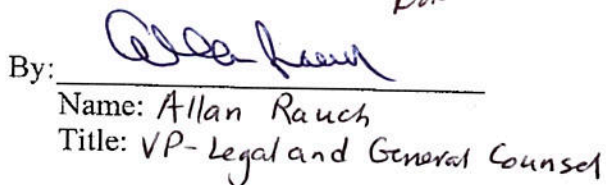 By:
Name: Allan Rauch
Title: VP-Legal and General Counsel